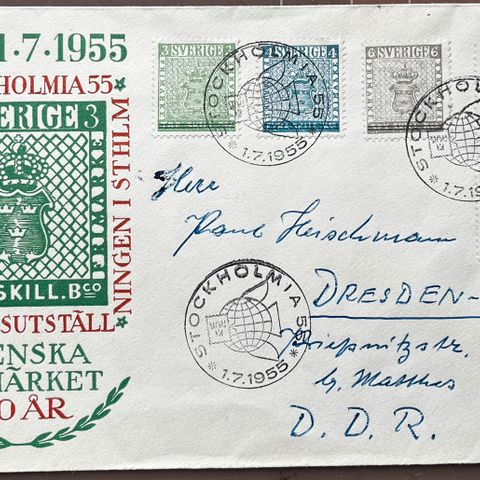 1.7.1955
HOLMIA 55
NINGEN I STHLM
ERIGE 3
FRIMÄRKE
SKILL. Bco
SUTSTÄLL
ENSKA
ÄRKET
0 ÅR
3 SVERIGE 2
4 SVERIGE 4
6 SVERIGE 6
STOCKHOLMIA 55
1.7.1955
STOCKHOLM
1.7.1955
STOCKHOLMIA 55
1.7.1955
Herr
Paul Heischmann
DRESDEN-
b. Matthes
D. D. R.